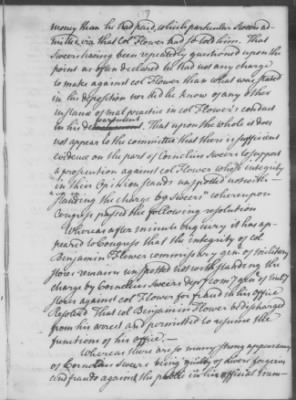 money than he had paid, which particular Sweers ad-
mitted, viz that Col Flower had so told him. That
Sweers having been repeatedly questioned upon the
point as often declared he had not any charge
to make against Col Flower than what was stated
in his deposition nor did he know of any other
instance of mal practice in Col Flower's conduct
in his department. That upon the whole it does
not appear to the committee that there is sufficient
evidence on the part of Cornelius Sweers to support
a prosecution against Col Flower whose integrity
in their Opinion stands unspotted notwith-
standing the charge by Sweers" whereupon
Congress passed the following resolution
Whereas after minute enquiry it has ap-
peared to Congress that the integrity of Col
Benjamin Flower commissary gen of military
stores remains unspotted notwithstanding the
charge by Cornelius Sweers depy com'y gen of mil'y
stores against Col Flower for fraud in his office
resolved That Col Benjamin Flower be discharged
from his arrest and permitted to resume the
functions of his office.—
Whereas there are so many strong appearances
of Cornelius Sweers being guilty of divers forgeries
and frauds against the public in his official tran-